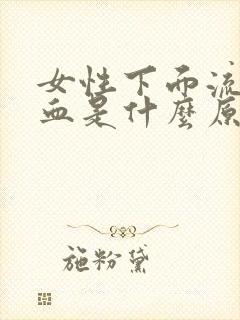 女性下面流
血是什麼原
施粉黛